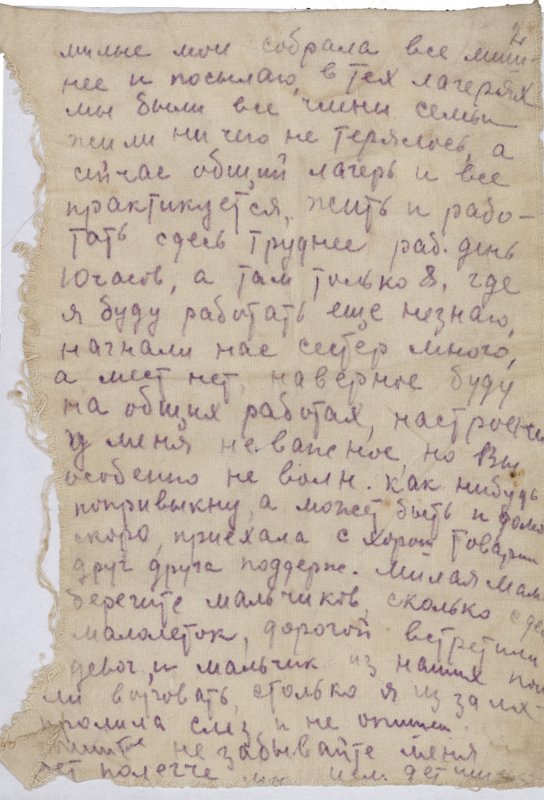 2
милые мои собрала все лиш-
нее и посылаю, в тех лагерях
мы были все члены семьи
жили ничего не терялось, а
сийчас общий лагерь и все
практикуется, жить и рабо-
тать сдесь труднее раб. день
10 часов, а там только 8, где
я буду работать еще незнаю,
нагнали нас сестер много,
а мест нет, наверное буду
на общих работах, настроение
у меня неважное, но Вы
особенно не волн. как нибудь
попривыкну, а может быть и домой
скоро, приехала с хорош товарищ
друг друга поддерж. милая мама
берегите мальчиков, сколько сдесь
малолеток, дорогой встретили
девоч. и мальчик из наших
ли воровать, столько я из за них
пролила слез и не опишеш.
пишите не забывайте меня
полегче